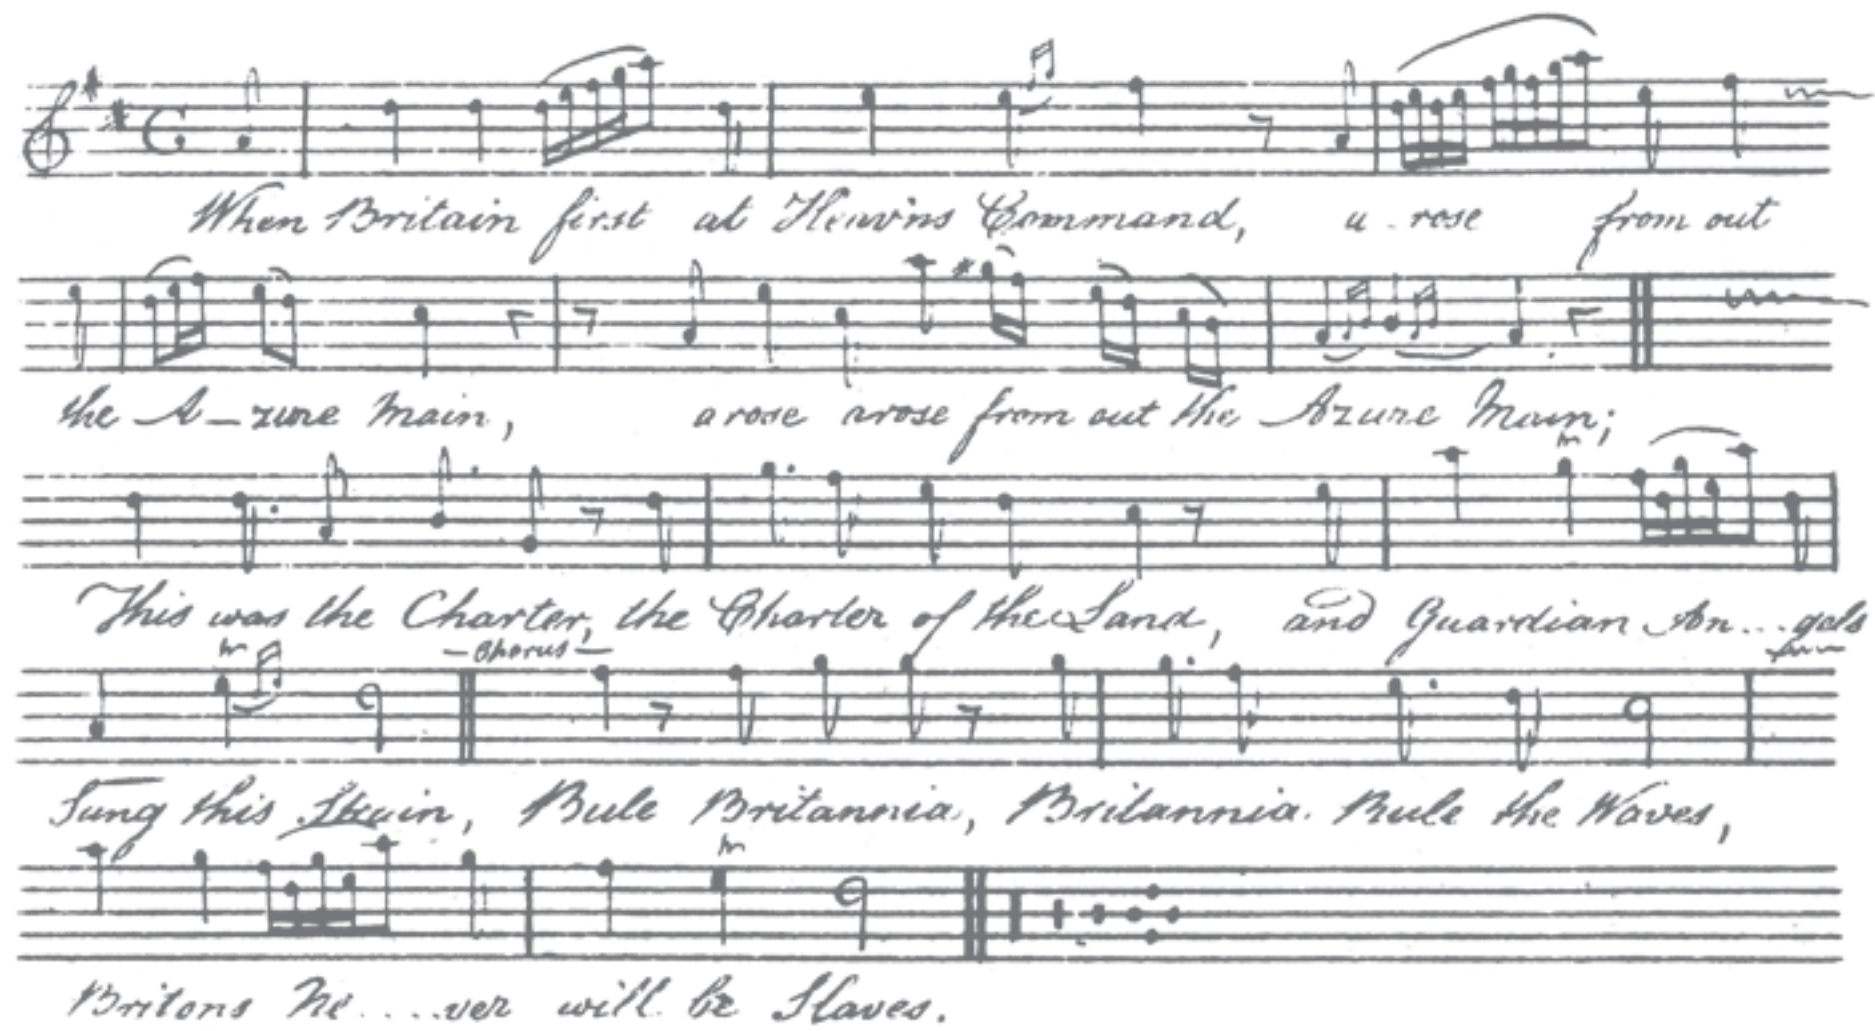 When Britain first at Heav'ns Command, a-rose from out
the A-zure Main, arose arose from out the Azure Main;
This was the Charter, the Charter of the Land, and Guardian An...gels
- Chorus -
Sung this Strain, Rule Britannia, Britannia. Rule the Waves,
Britons Ne....ver will be Slaves.